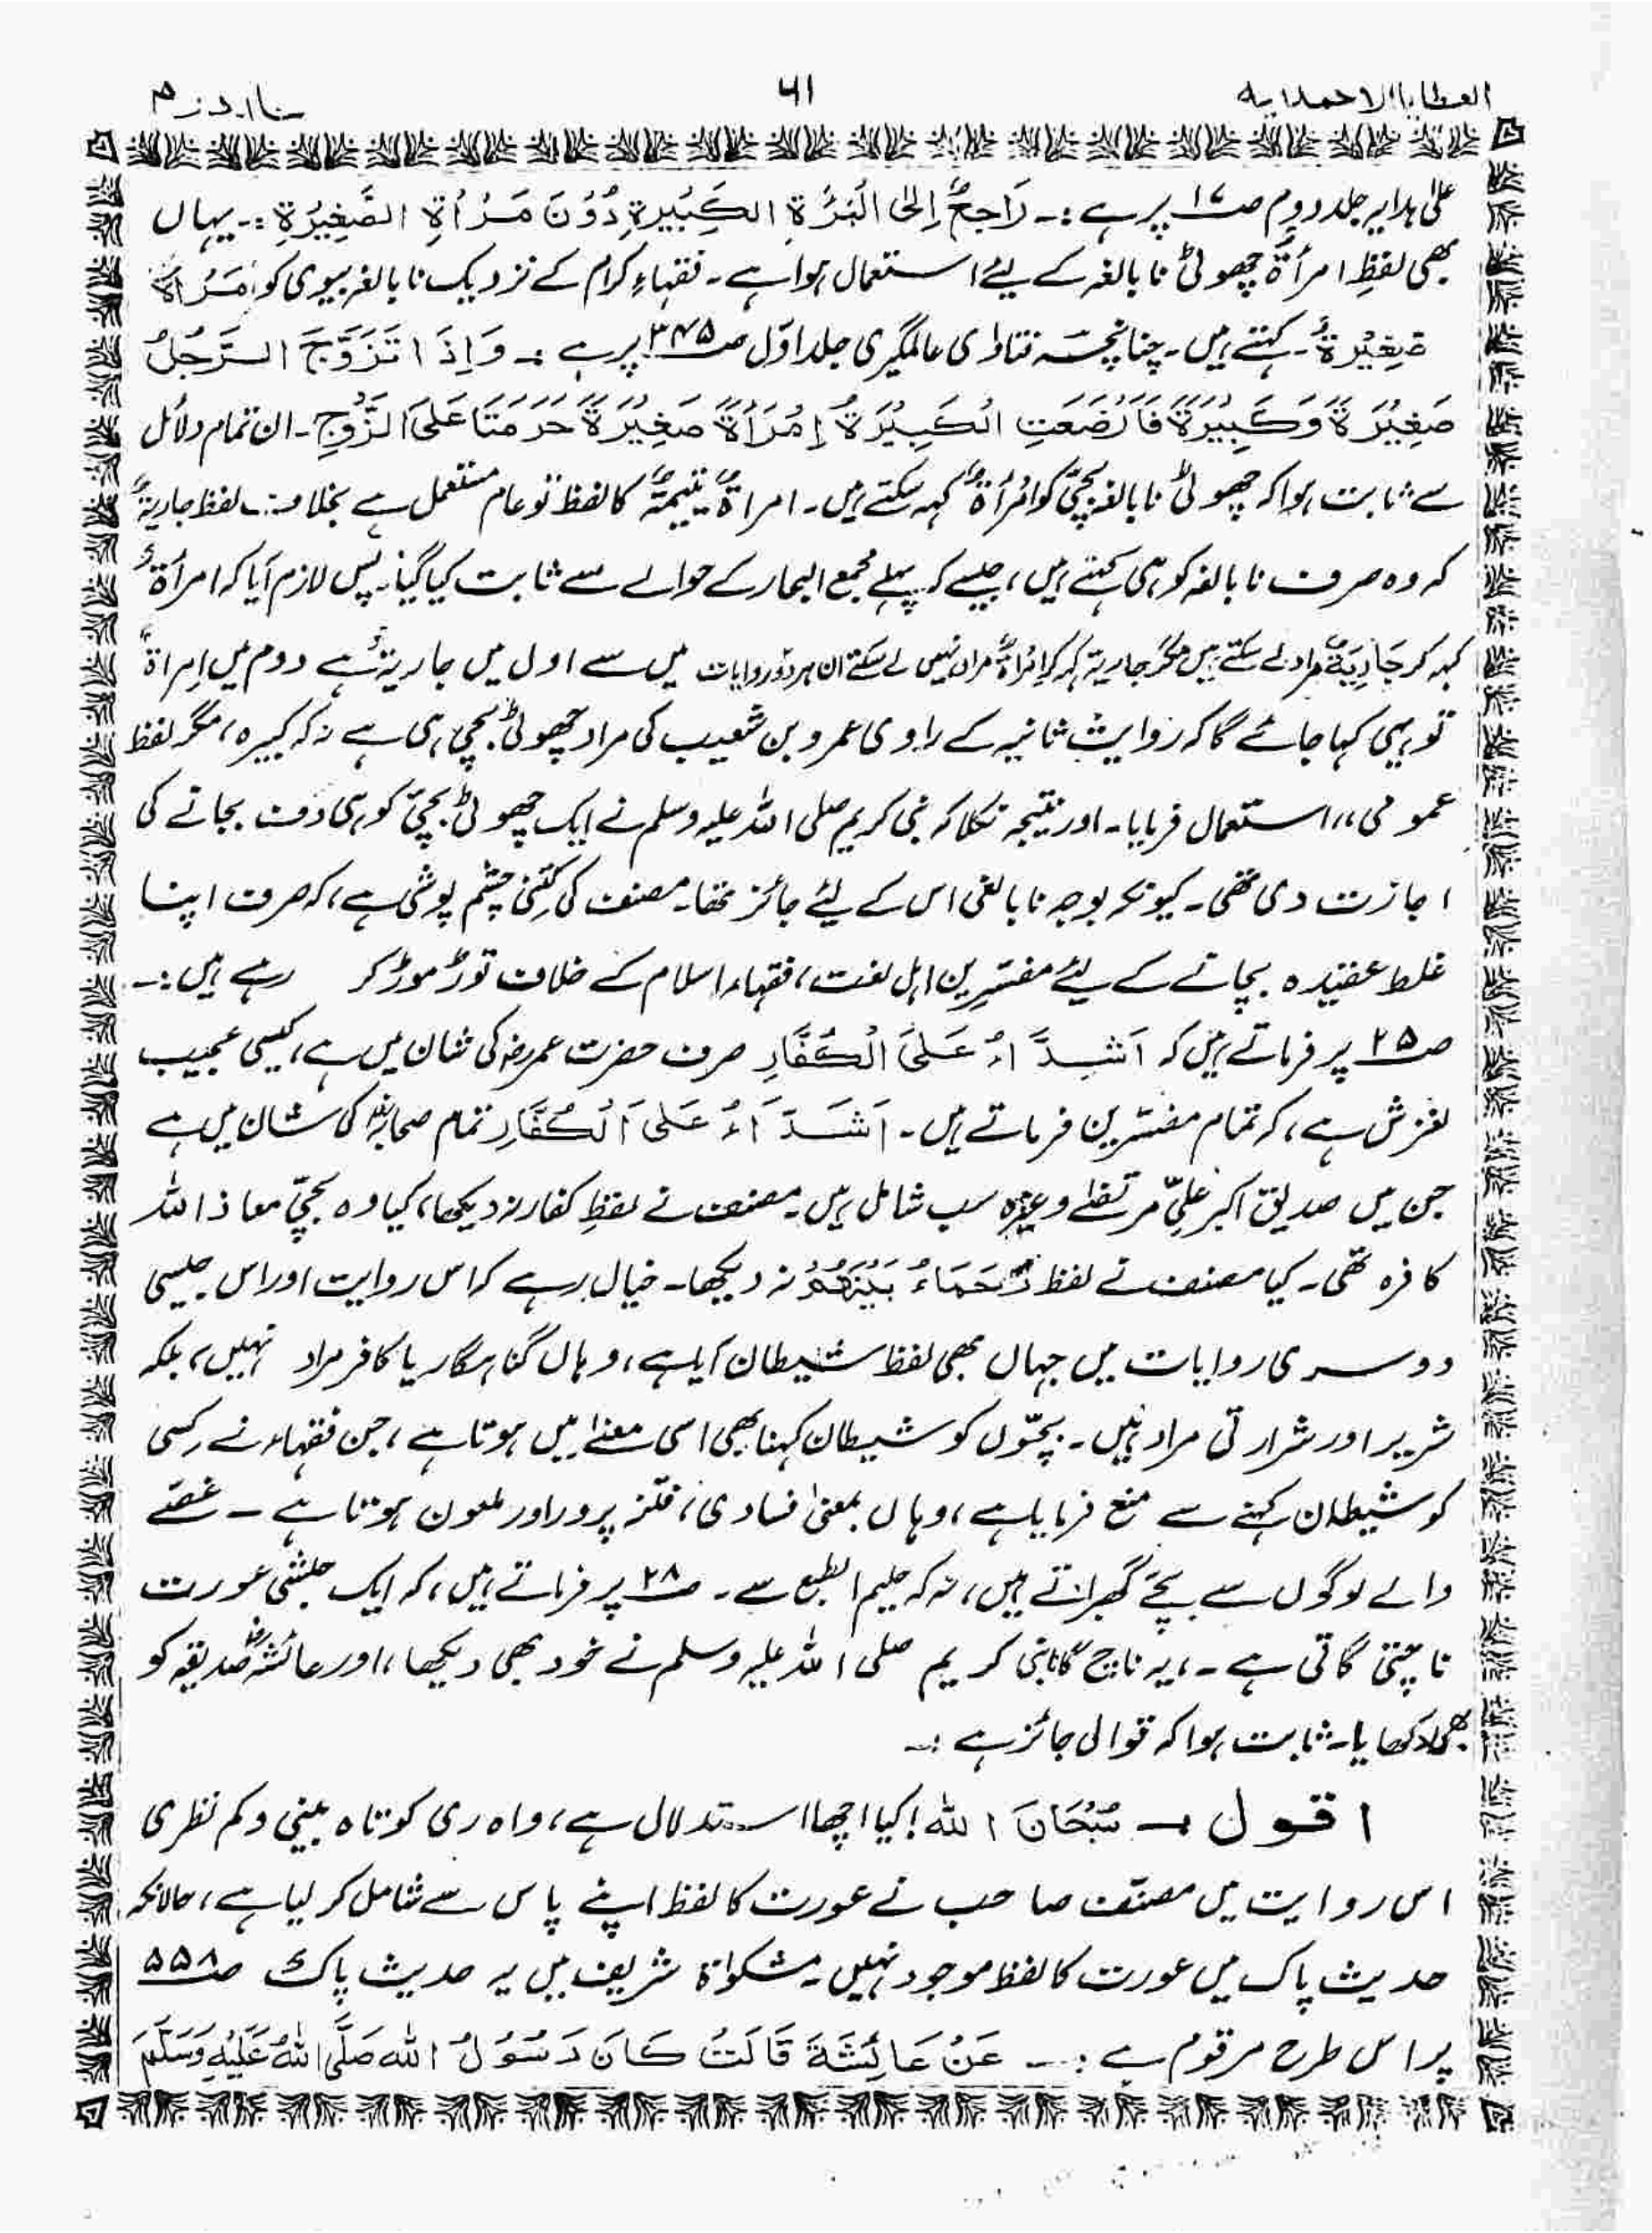 العطایا الاحمدیه ۶۱
علٰی ہدایہ جلد دوم صـ۱۷ پر ہے :۔ رَاجِعٌ اِلَی الْمَرْأَۃِ الْكَبِيْرَةِ دُوْنَ مَرْأَۃِ الصَّغِيْرَةِ :۔ یہاں
بھی لفظِ امرأۃٌ چھوٹی نابالغہ کے لیئے استعمال ہوا ہے ۔ فقہاءِ کرام کے نزدیک نابالغہ بیوی کو اِمْرَاَۃٌ
صَغِیْرَۃٌ ۔ کہتے ہیں ۔ چنانچہ فتاوٰی عالمگیری جلد اوّل صـ۳۴۵ پر ہے :۔ وَاِذَا تَزَوَّجَ الرَّجُلُ
صَغِيْرَةً وَكَبِيْرَةً فَاَرْضَعَتِ الْكَبِيْرَةُ اِمْرَأَةً صَغِيْرَةً حَرُمَتَا عَلَى الزَّوْجِ ۔ ان تمام دلائل
سے ثابت ہوا کہ چھوٹی نابالغہ بچی کو امْرَأۃٌ کہہ سکتے ہیں ۔ امراۃٌ یتیمۃٌ کا لفظ تو عام مستعمل ہے بخلاف لفظ جاریۃٌ
کہ وہ صرف نابالغہ کو ہی کہتے ہیں، جیسے کہ پہلے مجمع البحار کے حوالے سے ثابت کیا گیا۔ پس لازم آیا کہ امرأۃٌ
کہہ کر جَارِیَۃٌ مراد لے سکتے ہیں مگر جاریۃ کہہ کر اِمْرَاۃٌ مراد نہیں لے سکتے ان ہر دو روایات میں سے اول میں جاریۃٌ ہے دوم میں اِمراۃٌ
تو یہی کہا جائے گا کہ روایت ثانیہ کے راوی عمرو بن شعیب کی مراد چھوٹی بچی ہی ہے نہ کہ کبیرہ، مگر لفظ
عمومی ،، استعمال فرمایا ۔ اور نتیجہ نکلا کہ نبی کریم صلی اللہ علیہ وسلم نے ایک چھوٹی بچی کو ہی دف بجانے کی
اجازت دی تھی ۔ کیونکہ بوجہ نابالغی اس کے لیئے جائز تھا۔ مصنف کی کتنی چشم پوشی ہے، کہ صرف اپنا
غلط عقیدہ بچانے کے لیئے مفسّرین اہل لغت، فقہاء اسلام کے خلاف توڑ موڑ کر رہے ہیں :۔
صـ۲۵ پر فرماتے ہیں کہ اَشِدَّاءُ عَلَی الْكُفَّارِ صرف حضرت عمرؓ کی شان میں ہے، کیسی عجیب
لغزش ہے، کہ تمام مفسّرین فرماتے ہیں ۔ اَشِدَّاءُ عَلَی الْكُفَّارِ تمام صحابہؓ کی شان میں ہے
جن میں صدیق اکبر علیؓ مرتضٰے وغیرہ سب شامل ہیں ۔ مصنف نے لفظِ کفار نہ دیکھا، کیا وہ بچی معاذ اللہ
کافرہ تھی ۔ کیا مصنف نے لفظ رُحَمَاءُ بَيْنَهُمْ نہ دیکھا۔ خیال رہے کہ اس روایت اور اس جیسی
دوسری روایات میں جہاں بھی لفظ شیطان آیا ہے، وہاں گناہگار یا کافر مراد نہیں، بلکہ
شریر اور شرارتی مراد ہیں ۔ بچّوں کو شیطان کہنا بھی اسی معنےٰ میں ہوتا ہے، جن فقہاء نے کسی
کو شیطان کہنے سے منع فرمایا ہے، وہاں بمعنیٰ فسادی، فتنہ پرور اور ملعون ہوتا ہے ۔ غصّے
والے لوگوں سے بچّے گھبراتے ہیں، نہ کہ حلیم الطبع سے ۔ صـ۲۸ پر فرماتے ہیں، کہ ایک حبشی عورت
ناچتی گاتی ہے ۔، یہ ناچ گانا نبی کریم صلی اللہ علیہ وسلم نے خود بھی دیکھا، اور عائشہؓ صدیقہ کو
بھی دکھایا۔ ثابت ہوا کہ قوالی جائز ہے :۔
اقول :۔ سُبْحَانَ اللہ! کیا اچھا استدلال ہے، واہ ری کوتاہ بینی و کم نظری
اس روایت میں مصنّف صاحب نے عورت کا لفظ اپنے پاس سے شامل کر لیا ہے، حالانکہ
حدیث پاک میں عورت کا لفظ موجود نہیں ۔ مشکوٰۃ شریف میں یہ حدیث پاک صـ۵۵۸
پر اس طرح مرقوم ہے :۔ عَنْ عَائِشَةَ قَالَتْ كَانَ رَسُوْلُ اللہ صَلَّی اللہُ عَلَیْہِ وَسَلَّمَ